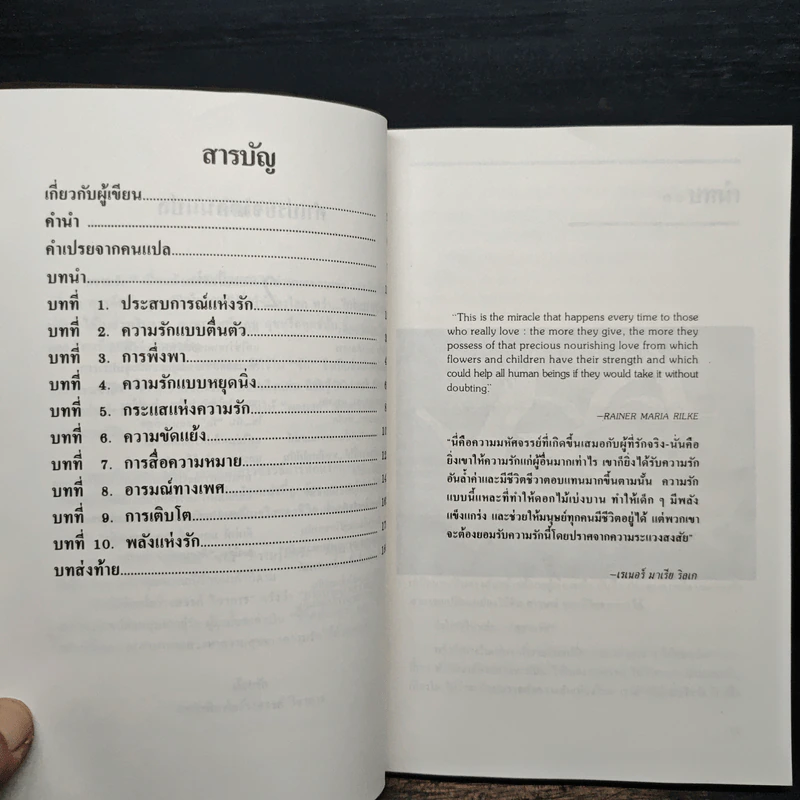 สารบัญ
เกี่ยวกับผู้เขียน
คำนำ
คำเปรยจากคนแปล
บทนำ
บทที่ 1. ประสบการณ์แห่งรัก
บทที่ 2. ความรักแบบตื่นตัว
บทที่ 3. การพึ่งพา
บทที่ 4. ความรักแบบหยุดนิ่ง
บทที่ 5. กระแสแห่งความรัก
บทที่ 6. ความขัดแย้ง
บทที่ 7. การสื่อความหมาย
บทที่ 8. อารมณ์ทางเพศ
บทที่ 9. การเติบโต
บทที่ 10. พลังแห่งรัก
บทส่งท้าย
"This is the miracle that happens every time to those
who really love : the more they give, the more they
possess of that precious nourishing love from which
flowers and children have their strength and which
could help all human beings if they would take it without
doubting."
—RAINER MARIA RILKE
"นี่คือความมหัศจรรย์ที่เกิดขึ้นเสมอกับผู้ที่รักจริง-นั่นคือ
ยิ่งเขาให้ความรักแก่ผู้อื่นมากเท่าไร เขาก็ยิ่งได้รับความรัก
อันล้ำค่าและมีชีวิตชีวาตอบแทนมากขึ้นตามนั้น ความรัก
แบบนี้แหละที่ทำให้ดอกไม้เบ่งบาน ทำให้เด็ก ๆ มีพลัง
แข็งแกร่ง และช่วยให้มนุษย์ทุกคนมีชีวิตอยู่ได้ แต่พวกเขา
จะต้องยอมรับความรักนี้โดยปราศจากความระแวงสงสัย"
—เรเนอร์ มาเรีย ริลเก